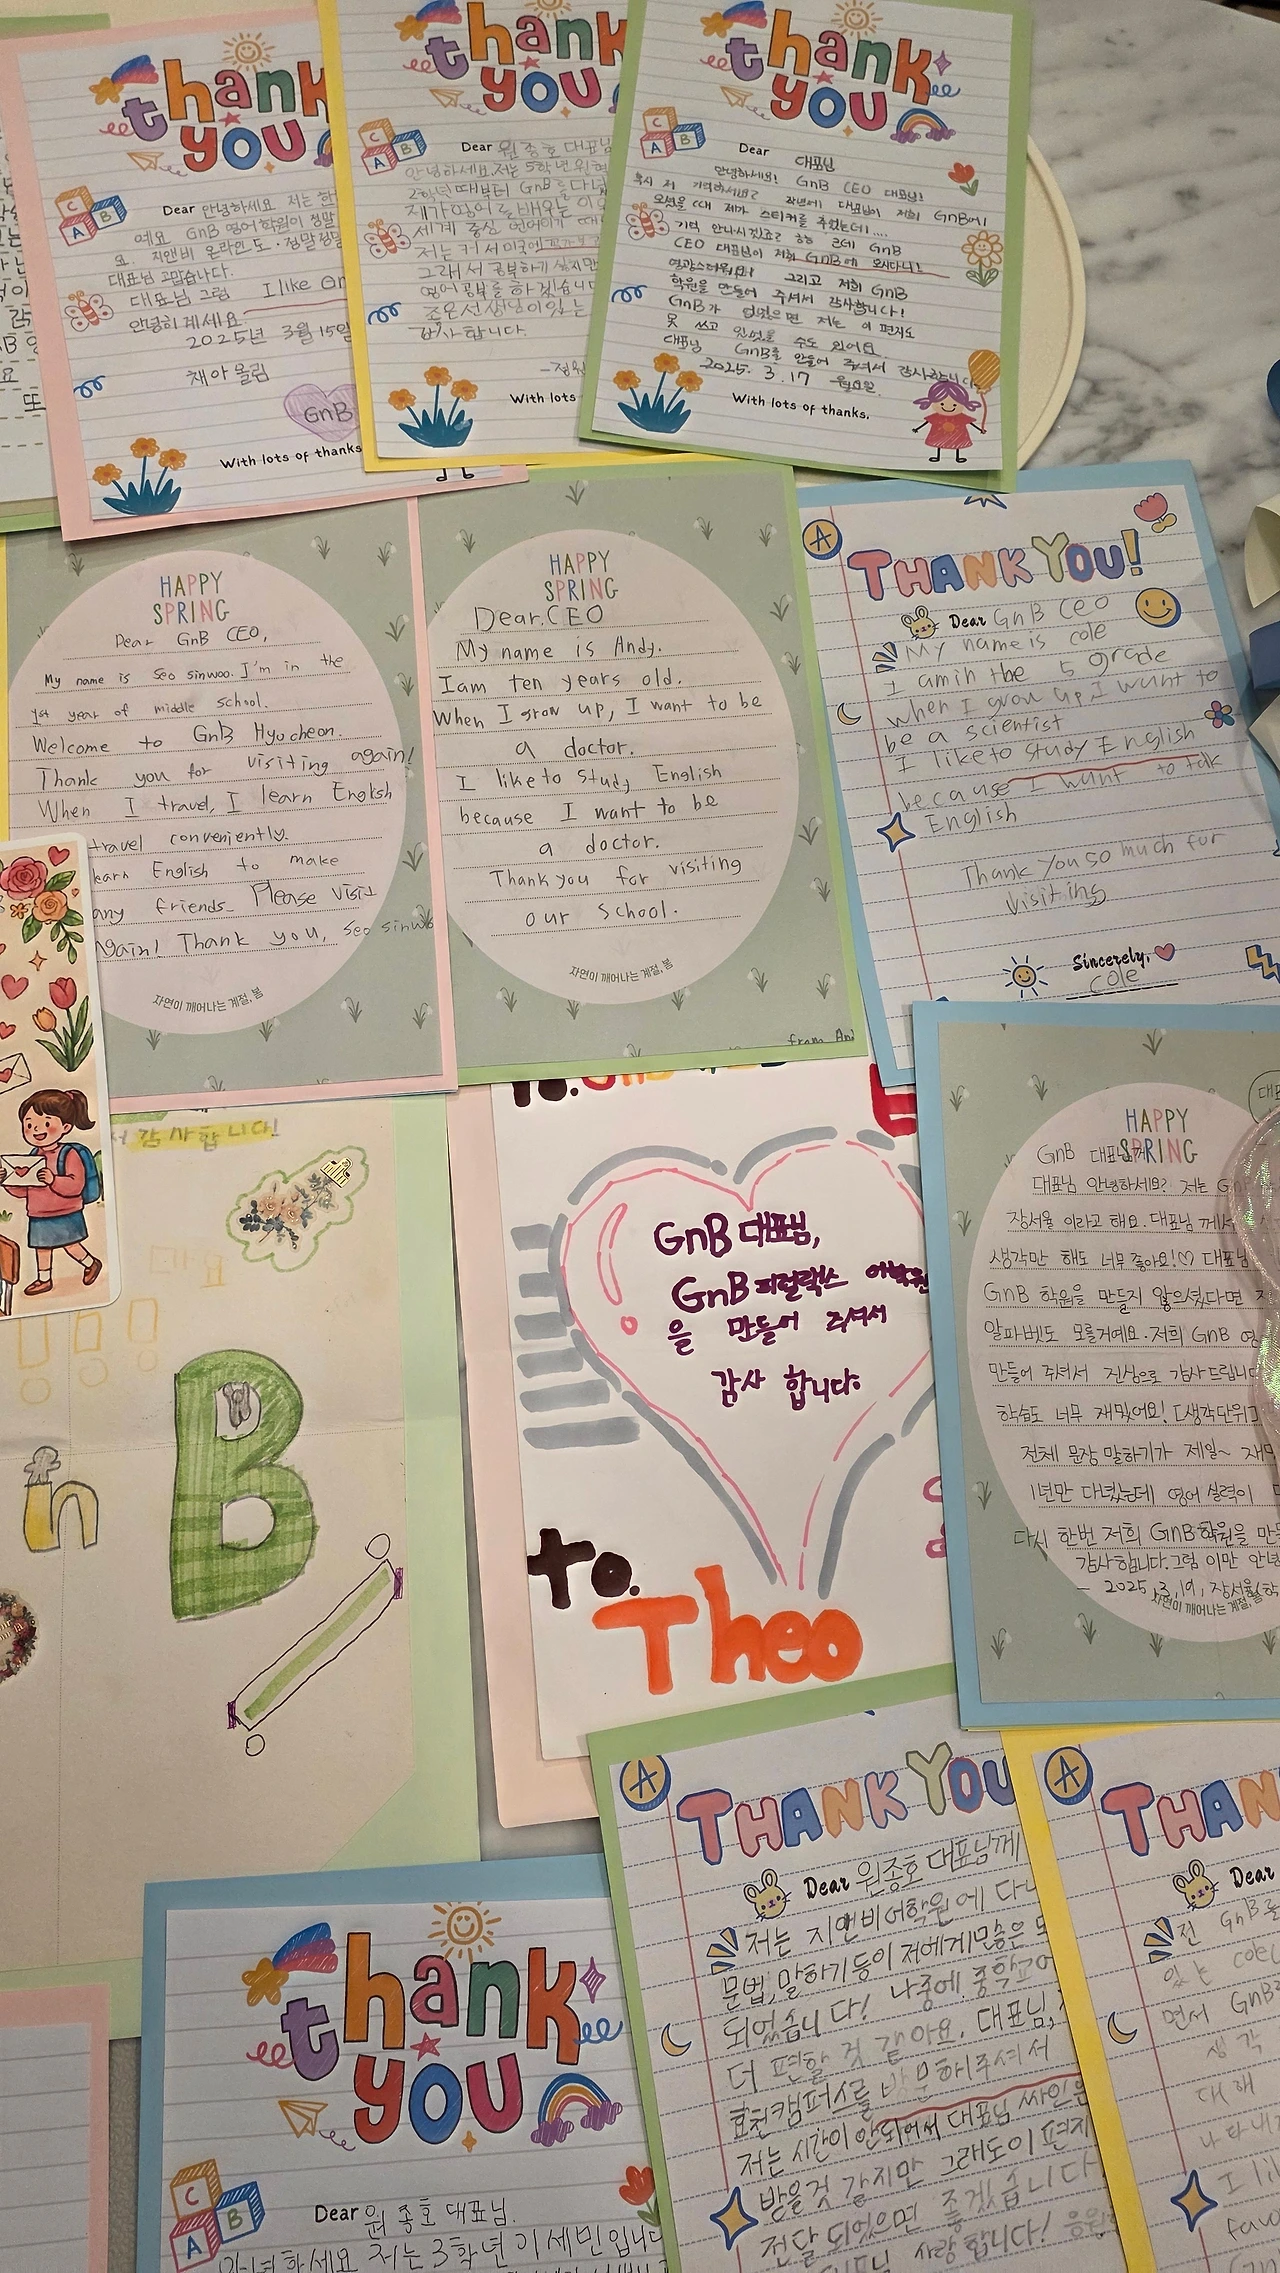 thank
you
Dear 안녕하세요 저는 한
예요. GnB 영어학원이 정말
요. 지앤비 온라인도 · 정말정말
대표님 고맙습니다.
대표님 그럼 I like Gn
안녕히계세요
2025년 3월 15일
채아 올림
GnB
With lots of thanks
thank
you
Dear 원종호 대표님
안녕하세요. 저는 5학년
2학년때부터 GnB를 다녔
제가 영어를 배우는 이유
세계 중심 언어이기 때
저는 커서 미국에
그래서 공부하기 싫지만
영어공부를 하겠습니다
선생님이 있는
감사합니다.
With lots
thank
you
Dear 대표님
안녕하세요! GnB CEO 대표님!
혹시 저 기억하세요? 작년에 대표님이 저희 GnB에
오셨을 때 제가 스티커를 주었는데....
기억 안나시겠죠? ㅎㅎ 근데 GnB
CEO 대표님이 저희 GnB에 오시다니!
영광스러워요! 그리고 저희 GnB
학원을 만들어 주셔서 감사합니다!
GnB가 없었으면 저는 이 편지도
못 쓰고 있었을 수도 있어요.
대표님 GnB를 만들어 주셔서 감사합니다.
2025. 3. 17 월요일.
With lots of thanks.
HAPPY
SPRING
Dear GnB CEO,
My name is Seo sinwoo. I'm in the
1st year of middle school.
Welcome to GnB Hyocheon.
Thank you for visiting again!
When I travel, I learn English
travel conveniently.
earn English to make
any friends. Please visit
Again! Thank you, Seo sinwo
자연이 깨어나는 계절, 봄
HAPPY
SPRING
Dear. CEO
My name is Andy.
I am ten years old.
When I grow up, I want to be
a doctor.
I like to study English
because I want to be
a doctor.
Thank you for visiting
our school.
자연이 깨어나는 계절, 봄
from An
THANK YOU!
Dear GnB CEO
My name is cole
I am in the 5 grade
when I grow up, I want to
be a scientist
I like to study English
because I want to talk
English
Thank you so much for
visiting
Sincerely,
cole
서 감사합니다!
마요
n B
GnB 대표님,
GnB 퍼럴랙스 어학원
을 만들어 주셔서
감사 합니다.
to.
Theo
HAPPY
SPRING
GnB 대표님께
대표님 안녕하세요? 저는 G
장서율 이라고 해요. 대표님께서
생각만 해도 너무 좋아요!♡ 대표님
GnB 학원을 만들지 않으셨다면 저
알파벳도 모를거예요. 저희 GnB 영
만들어 주셔서 진심으로 감사드립니다
학습도 너무 재밌어요! [생각단위]
전체 문장 말하기가 제일~ 재미
1년만 다녔는데 영어 실력이
다시 한번 저희 GnB학원을 만들
감사합니다. 그럼 이만 안녕
- 2025, 3, 19, 장서율(학
자연이 깨어나는 계절, 봄
THANK YOU
Dear 원종호 대표님께
저는 지앤비어학원에 다니
문법, 말하기 등이 저에게 많은 도
되었습니다! 나중에 중학교에
더 편할 것 같아요. 대표님,
효천캠퍼스를 방문해주셔서
저는 시간이 안되어서 대표님 싸인을
받을것 같지만 그래도 이 편지
전달 되었으면 좋겠습니다
대표님 사랑합니다!
THAN
Dear
전 GnB를
있는
면서 GnB
생각
대해
나타내
I li
favo
thank
you
Dear 원종호 대표님.
안녕하세요 저는 3학년 이세빈입니다